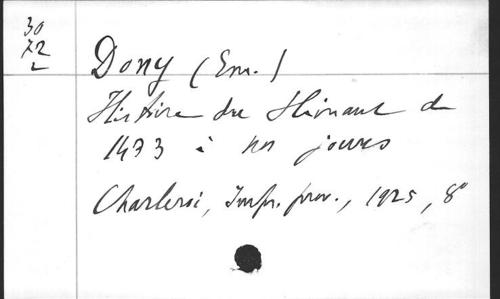 30
72
2
Dony (Em.)
Histoire du Hainaut de
1433 à nos jours
Charleroi, Impr. prov., 1925, 8°